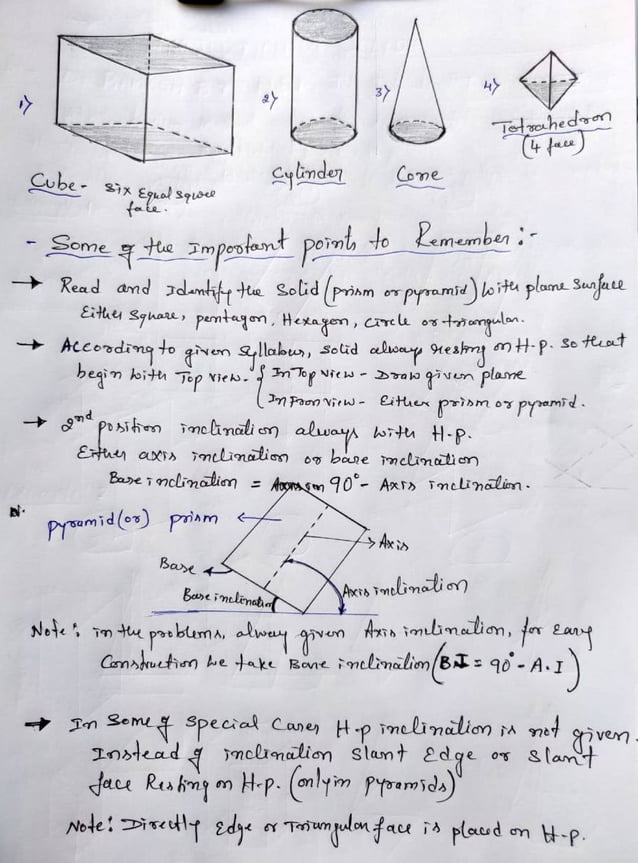 1)
2)
3)
4)
Cube - Six Equal Square
face.
Cylinder
Cone
Tetrahedron
(4 face)
- Some of the Important points to Remember:-
→ Read and Identify the Solid (prism or pyramid) with plane Surface
Either Square, pentagon, Hexagon, Circle or triangular.
→ According to given Syllabus, Solid always resting on H.p. So that
begin with Top view. { In Top view - Draw given plane
In Fron view - Either prism or pyramid.
→ 2nd position inclination always with H.p.
Either axis inclination or base inclination
Base inclination = 90° - Axis inclination.
N.
pyramid (or) prism
Axis
Base
Base inclination
Axis inclination
Note: in the problems, alway given Axis inclination, for easy
Construction we take Base inclination (B.I = 90° - A.I)
→ In Some of Special Cases H.p inclination is not given.
Instead of inclination Slant Edge or Slant
face Resting on H.p. (only in pyramids)
Note: Directly Edge or Triangular face is placed on H.p.